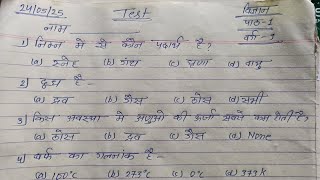 24/05/25 Test विज्ञान
नाम पाठ-1
वर्ग-
1) निम्न में से कौन पदार्थ है?
(a) स्नेह (b) गंध (c) घृणा (d) वायु
2) दूध है-
(a) द्रव (b) गैस (c) ठोस (d) सभी
3) किस अवस्था में अणुओं की ऊर्जा सबसे कम होती है?
(a) ठोस (b) द्रव (c) गैस (d) None
4) बर्फ का गलनांक है-
(a) 100°C (b) 273°C (c) 0°C (d) 373K